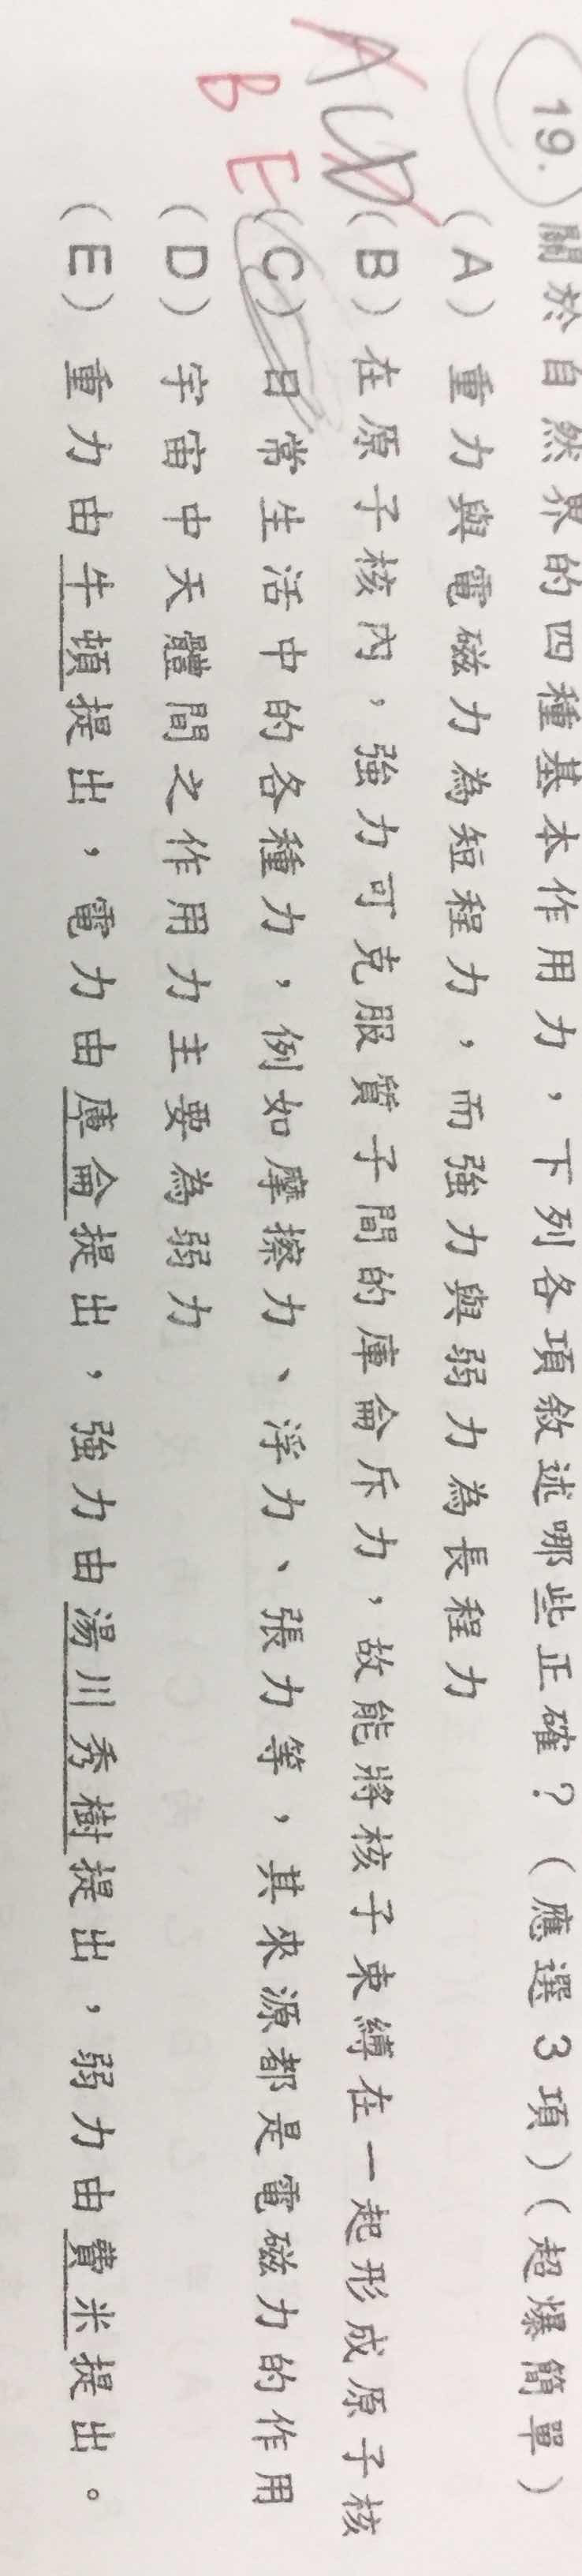 ACD
B E
19. 關於自然界的四種基本作用力，下列各項敘述哪些正確？（應選3項）（超爆簡單）
（A）重力與電磁力為短程力，而強力與弱力為長程力
（B）在原子核內，強力可克服質子間的庫侖斥力，故能將核子束縛在一起形成原子核
（C）日常生活中的各種力，例如摩擦力、浮力、張力等，其來源都是電磁力的作用
（D）宇宙中天體間之作用力主要為弱力
（E）重力由牛頓提出，電力由庫侖提出，強力由湯川秀樹提出，弱力由費米提出。